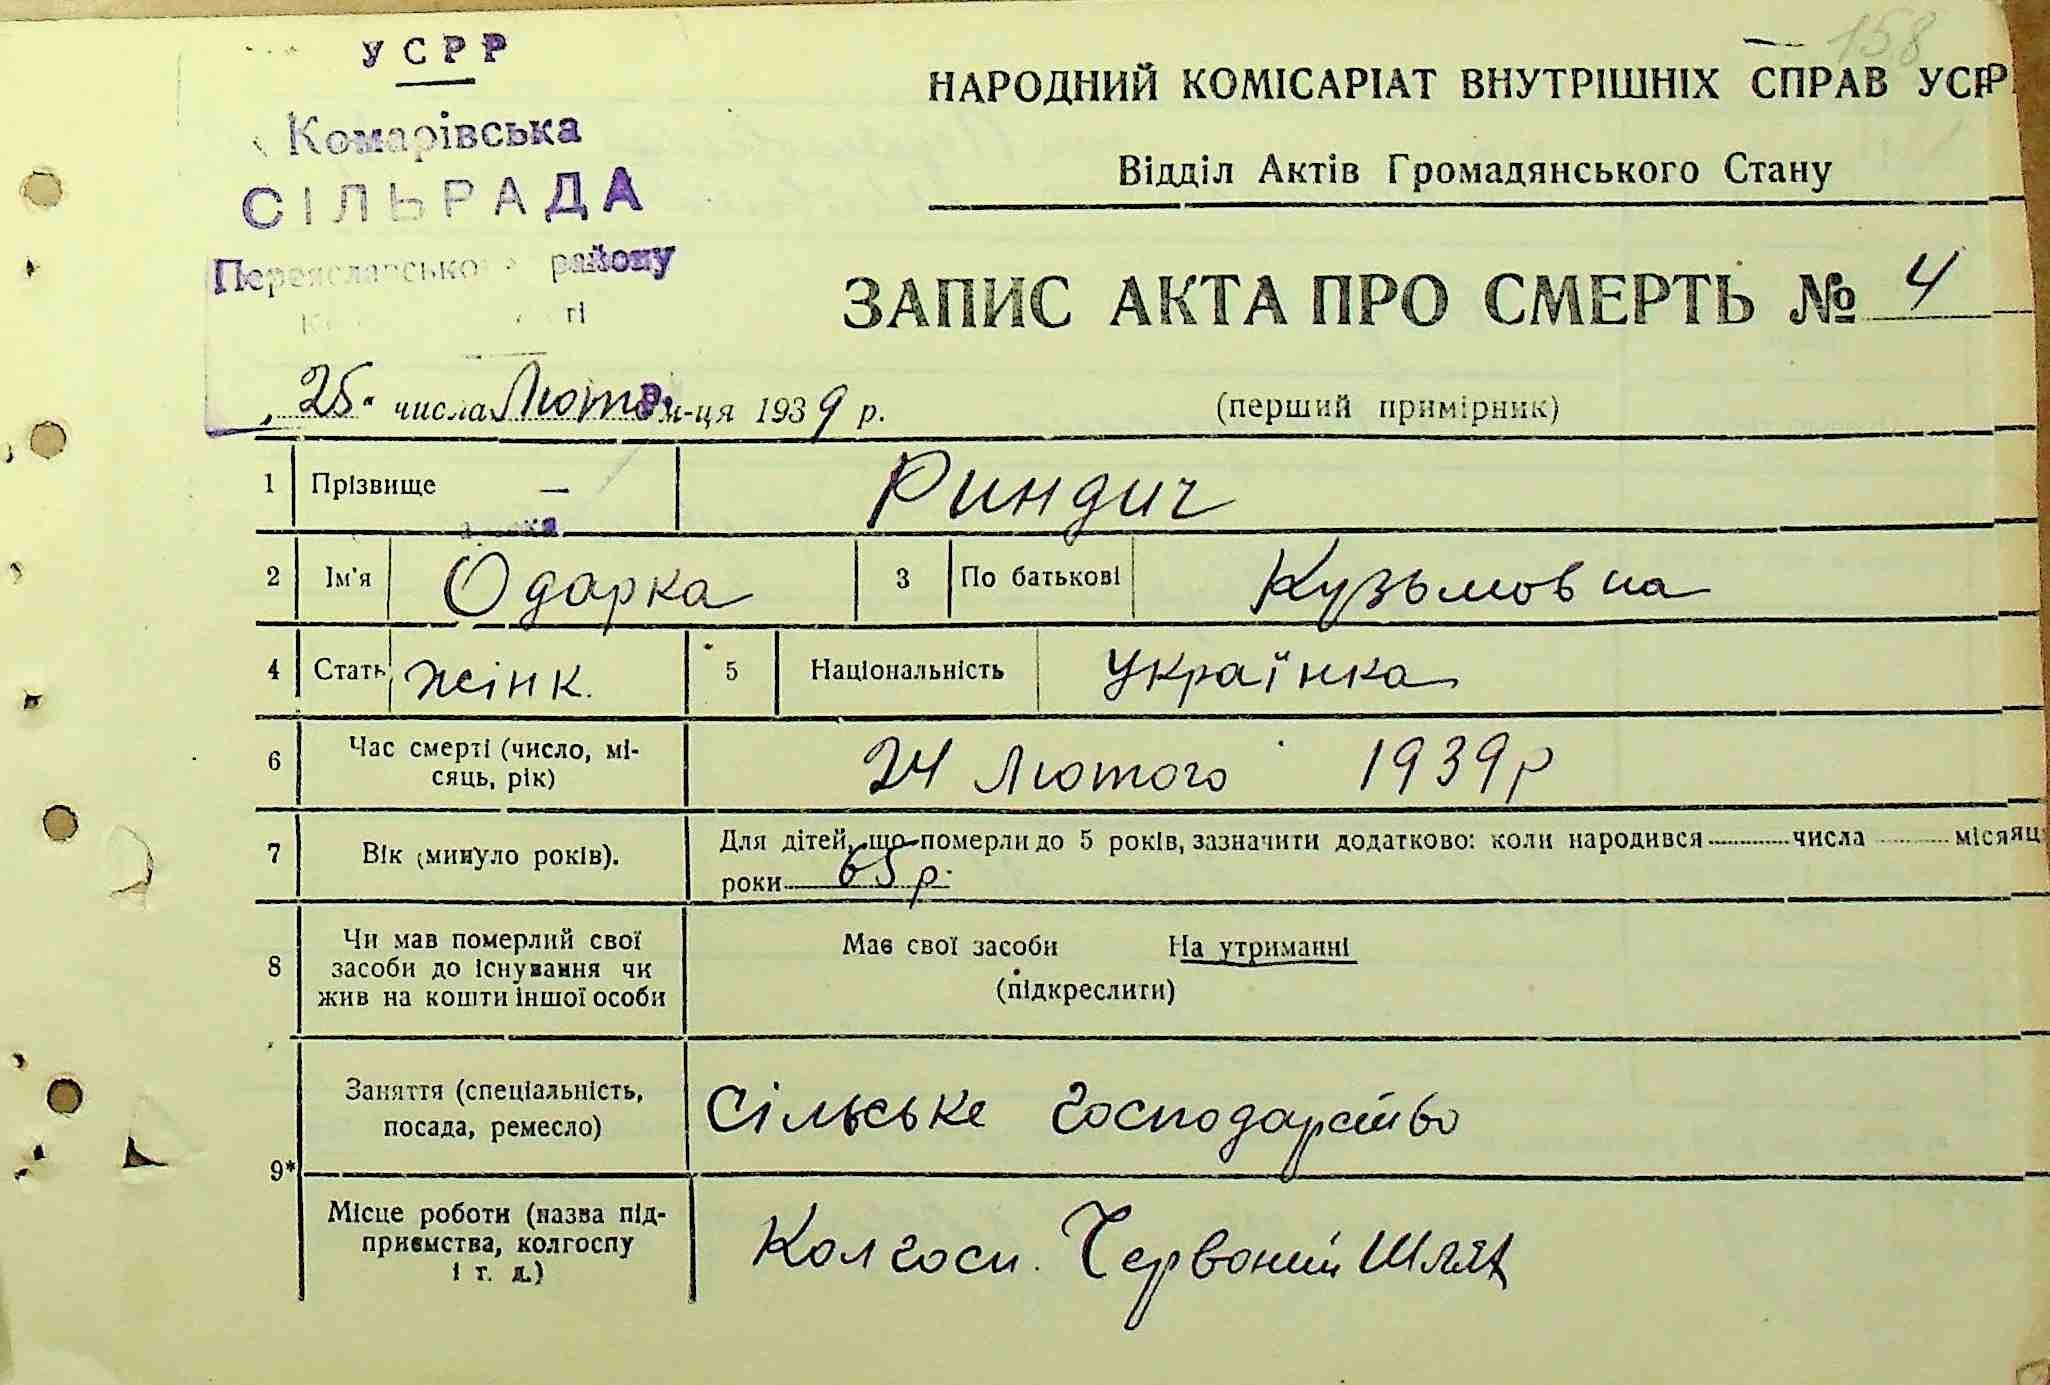 158
УСРР
Комарівська
СІЛЬРАДА
Переяславського району
НАРОДНИЙ КОМІСАРІАТ ВНУТРІШНІХ СПРАВ УСРР
Відділ Актів Громадянського Стану
ЗАПИС АКТА ПРО СМЕРТЬ № 4
"25" числа Лютого м-ця 1939 р.
(перший примірник)
1 Прізвище — Риндич
2 Ім'я Одарка 3 По батькові Кузьмовна
4 Стать жінк. 5 Національність Українка
6 Час смерті (число, мі-
сяць, рік)
24 Лютого 1939 р
7 Вік (минуло років).
Для дітей, що померли до 5 років, зазначити додатково: коли народився числа місяця
роки 65 р.
8 Чи мав померлий свої
засоби до існування чи
жив на кошти іншої особи
Має свої засоби На утриманні
(підкреслити)
9* Заняття (спеціальність,
посада, ремесло)
Сільське господарство
Місце роботи (назва під-
приємства, колгоспу
і т. д.)
Колгосп. Червоний Шлях